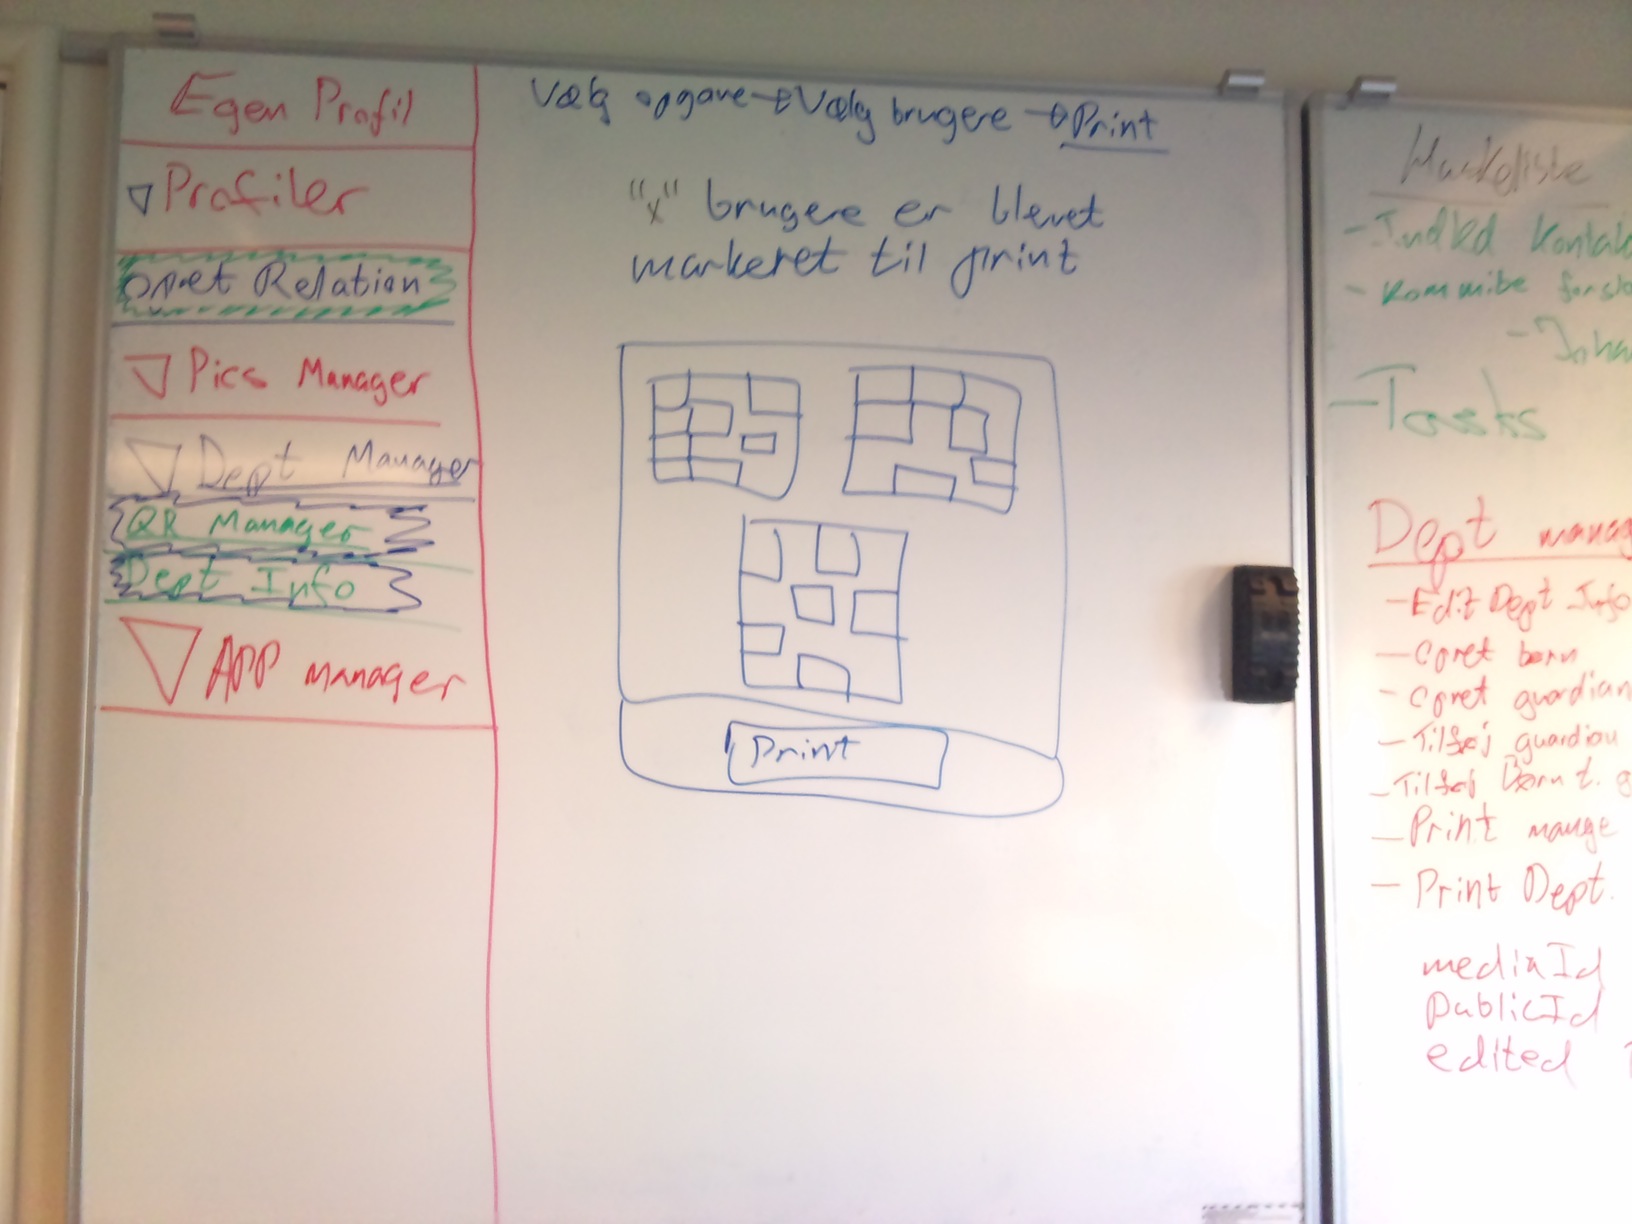 Egen Profil
Profiler
Opret Relation
Pics Manager
Dept Manager
QR Manager
Dept Info
APP manager
Vælg opgave → Vælg brugere → Print
"x" brugere er blevet
markeret til print
Print
Huskeliste
- Indkld
- Kommibe
- Joha
- Tasks
Dept manag
- Edit Dept Info
- Opret børn
- Opret guardian
- Tilføj guardian
- Tilføj Børn t. g
- Print mange
- Print Dept.
mediaId
publicId
edited